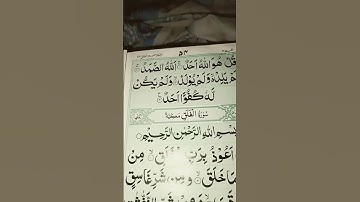 ۵۴
قُلْ هُوَ اللّٰهُ اَحَدٌ ۚ اَللّٰهُ الصَّمَدُ ۚ
لَمْ يَلِدْ ۙ وَلَمْ يُوْلَدْ ۙ وَلَمْ يَكُنْ
لَّهٗ كُفُوًا اَحَدٌ
سُوْرَةُ الْفَلَقِ مَكِّيَّةٌ
بِسْمِ اللّٰهِ الرَّحْمٰنِ الرَّحِيْمِ
اَعُوْذُ بِرَبِّ الْفَلَقِ ۙ مِنْ
مَا خَلَقَ ۙ وَمِنْ شَرِّ غَاسِقٍ
شَرِّ النَّفّٰثٰتِ